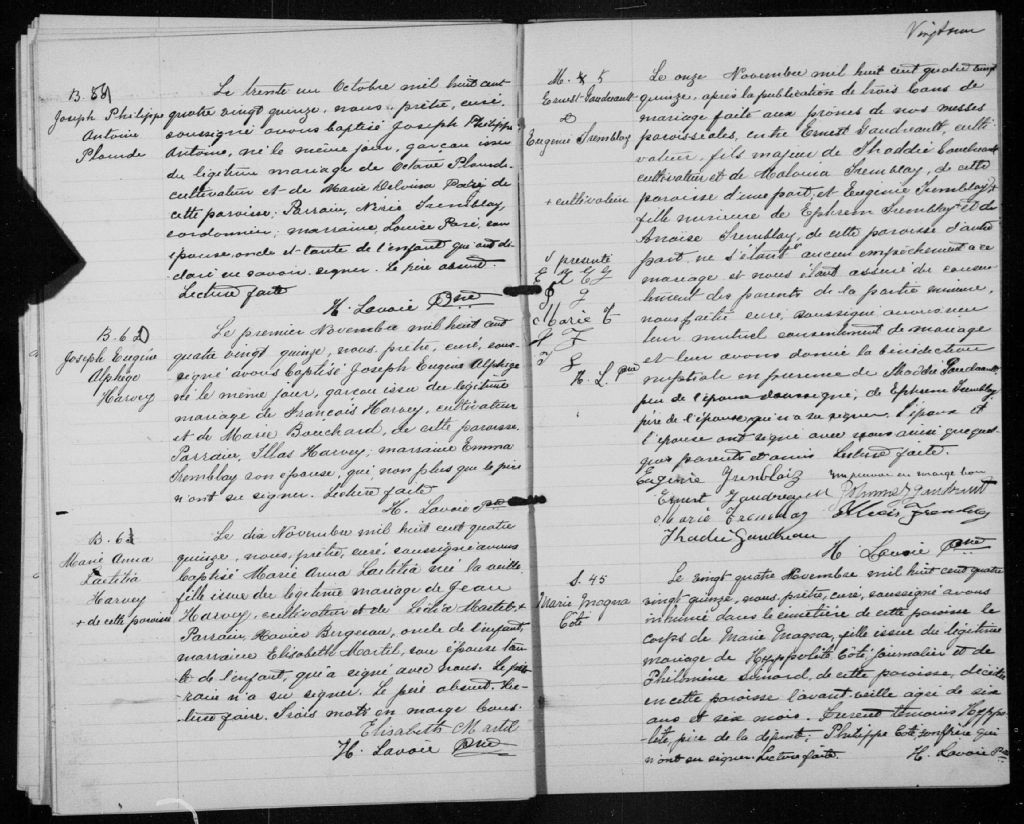 B. 59
Joseph Philippe
Antoine
Plourde
Le trente un Octobre mil huit cent
quatre vingt quinze, nous, prêtre, curé,
soussigné avons baptisé Joseph Philippe
Antoine, né le même jour, garçon issu
du légitime mariage de Octave Plourde
cultivateur et de Marie Delvina Paré de
cette paroisse; Parrain, Nérée Tremblay,
cordonnier; marraine, Louise Paré, son
épouse, oncle et tante de l'enfant qui ont dé-
claré ne savoir signer. Le père absent.
Lecture faite
H. Lavoie Ptre
B. 60
Joseph Eugène
Alphège
Harvey
Le premier Novembre mil huit cent
quatre vingt quinze, nous, prêtre, curé, sous-
signé avons baptisé Joseph Eugène Alphège
né le même jour, garçon issu du légitime
mariage de François Harvey, cultivateur
et de Marie Bouchard, de cette paroisse.
Parrain, Harvey; marraine Emma
Tremblay son épouse, qui, non plus que le père
n'ont su signer. Lecture faite
H. Lavoie Ptre
B. 61
Marie Anna
Laetitia
Harvey
+ de cette paroisse
Le dix Novembre mil huit cent quatre
quinze, nous, prêtre, curé soussigné avons
baptisé Marie Anna Laetitia née la veille
fille issue du légitime mariage de Jean
Harvey, cultivateur et de Martel, +
Parrain, Xavier Bergeron, oncle de l'enfant,
marraine Elisabeth Martel, son épouse tan-
te de l'enfant, qui a signé avec nous. Le par-
rain n'a su signer. Le père absent. Lec-
ture faite. Trois mots en marge bons.
Elisabeth Martel
H. Lavoie Ptre
Vingt neuv
M. 5
Ernest Gaudreault
&
Eugénie Tremblay
+ cultivateur
Le onze Novembre mil huit cent quatre vingt
quinze, après la publication de trois bans de
mariage faite aux prônes de nos messes
paroissiales, entre Ernest Gaudreault, culti-
vateur, fils majeur de Thaddée Gaudreault
cultivateur et de Malvina Tremblay, de cette
paroisse d'une part, et Eugénie Tremblay,
fille mineure de Ephrem Tremblay + et de
Tremblay, de cette paroisse d'autre
part, ne s'étant aucun empêchement à ce
mariage et nous étant assuré du consen-
tement des parents de la partie mineure,
nous prêtre curé, soussigné avons reçu
leur mutuel consentement de mariage
et leur avons donné la bénédiction
nuptiale en présence de Thaddée Gaudreault,
père de l'époux soussigné, de Ephrem Tremblay
père de l'épouse qui n'a su signer. L'époux et
l'épouse ont signé avec nous ainsi que quel-
ques parents et amis Lecture faite.
présenté
E T E G
Marie T
H. L. Ptre
Eugénie Tremblay un renvoi en marge bon
Ernest Gaudreau
Marie Tremblay Alexis Tremblay
Thadée Gaudreau
H. Lavoie Ptre
S. 45
Marie Magna
Côté
Le vingt quatre Novembre mil huit cent quatre
vingt quinze, nous, prêtre, curé, soussigné avons
inhumé dans le cimetière de cette paroisse le
corps de Marie Magna, fille issue du légitime
mariage de Hyppolite Côté, journalier et de
Phélomène Simard, de cette paroisse, décédée
en cette paroisse l'avant-veille agée de six
ans et six mois. Furent témoins Hyppo-
lite, père de la défunte, Philippe Côté, son frère qui
n'ont su signer. Lecture faite. H. Lavoie Ptre